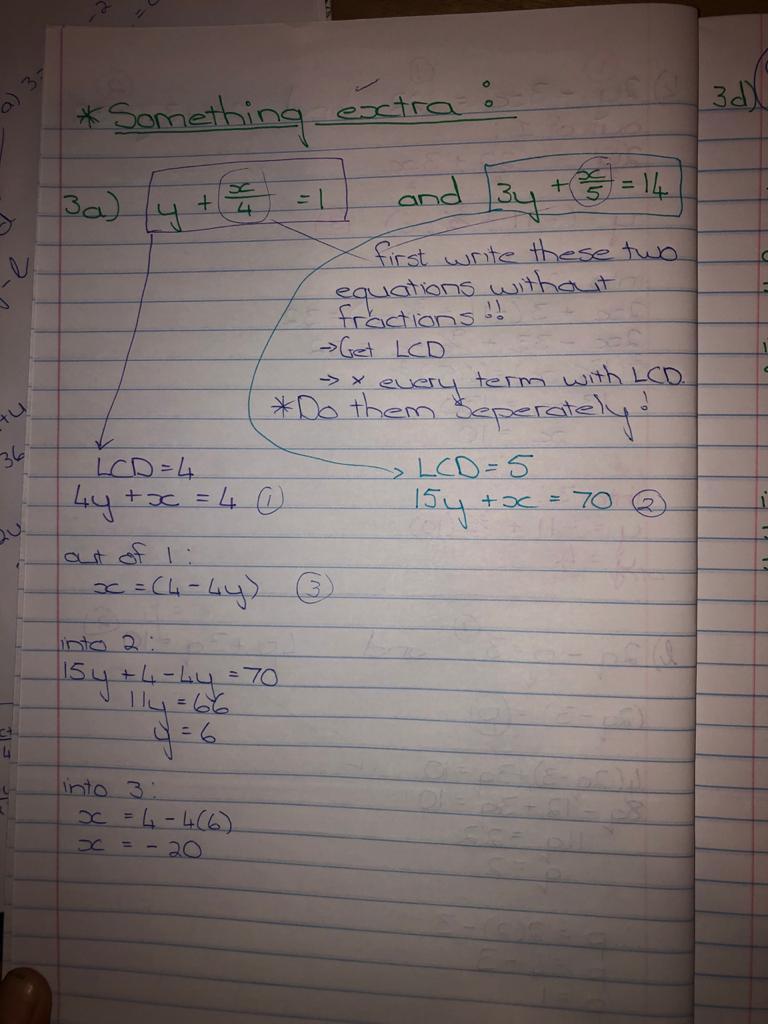 * Something extra :
3a) y + x/4 = 1 and 3y + x/5 = 14
first write these two
equations without
fractions !!
→ Get LCD
→ × every term with LCD.
* Do them seperately !
LCD = 4
4y + x = 4 ①
LCD = 5
15y + x = 70 ②
out of 1 :
x = (4 - 4y) ③
into 2 :
15y + 4 - 4y = 70
11y = 66
y = 6
into 3 :
x = 4 - 4(6)
x = - 20
3d)